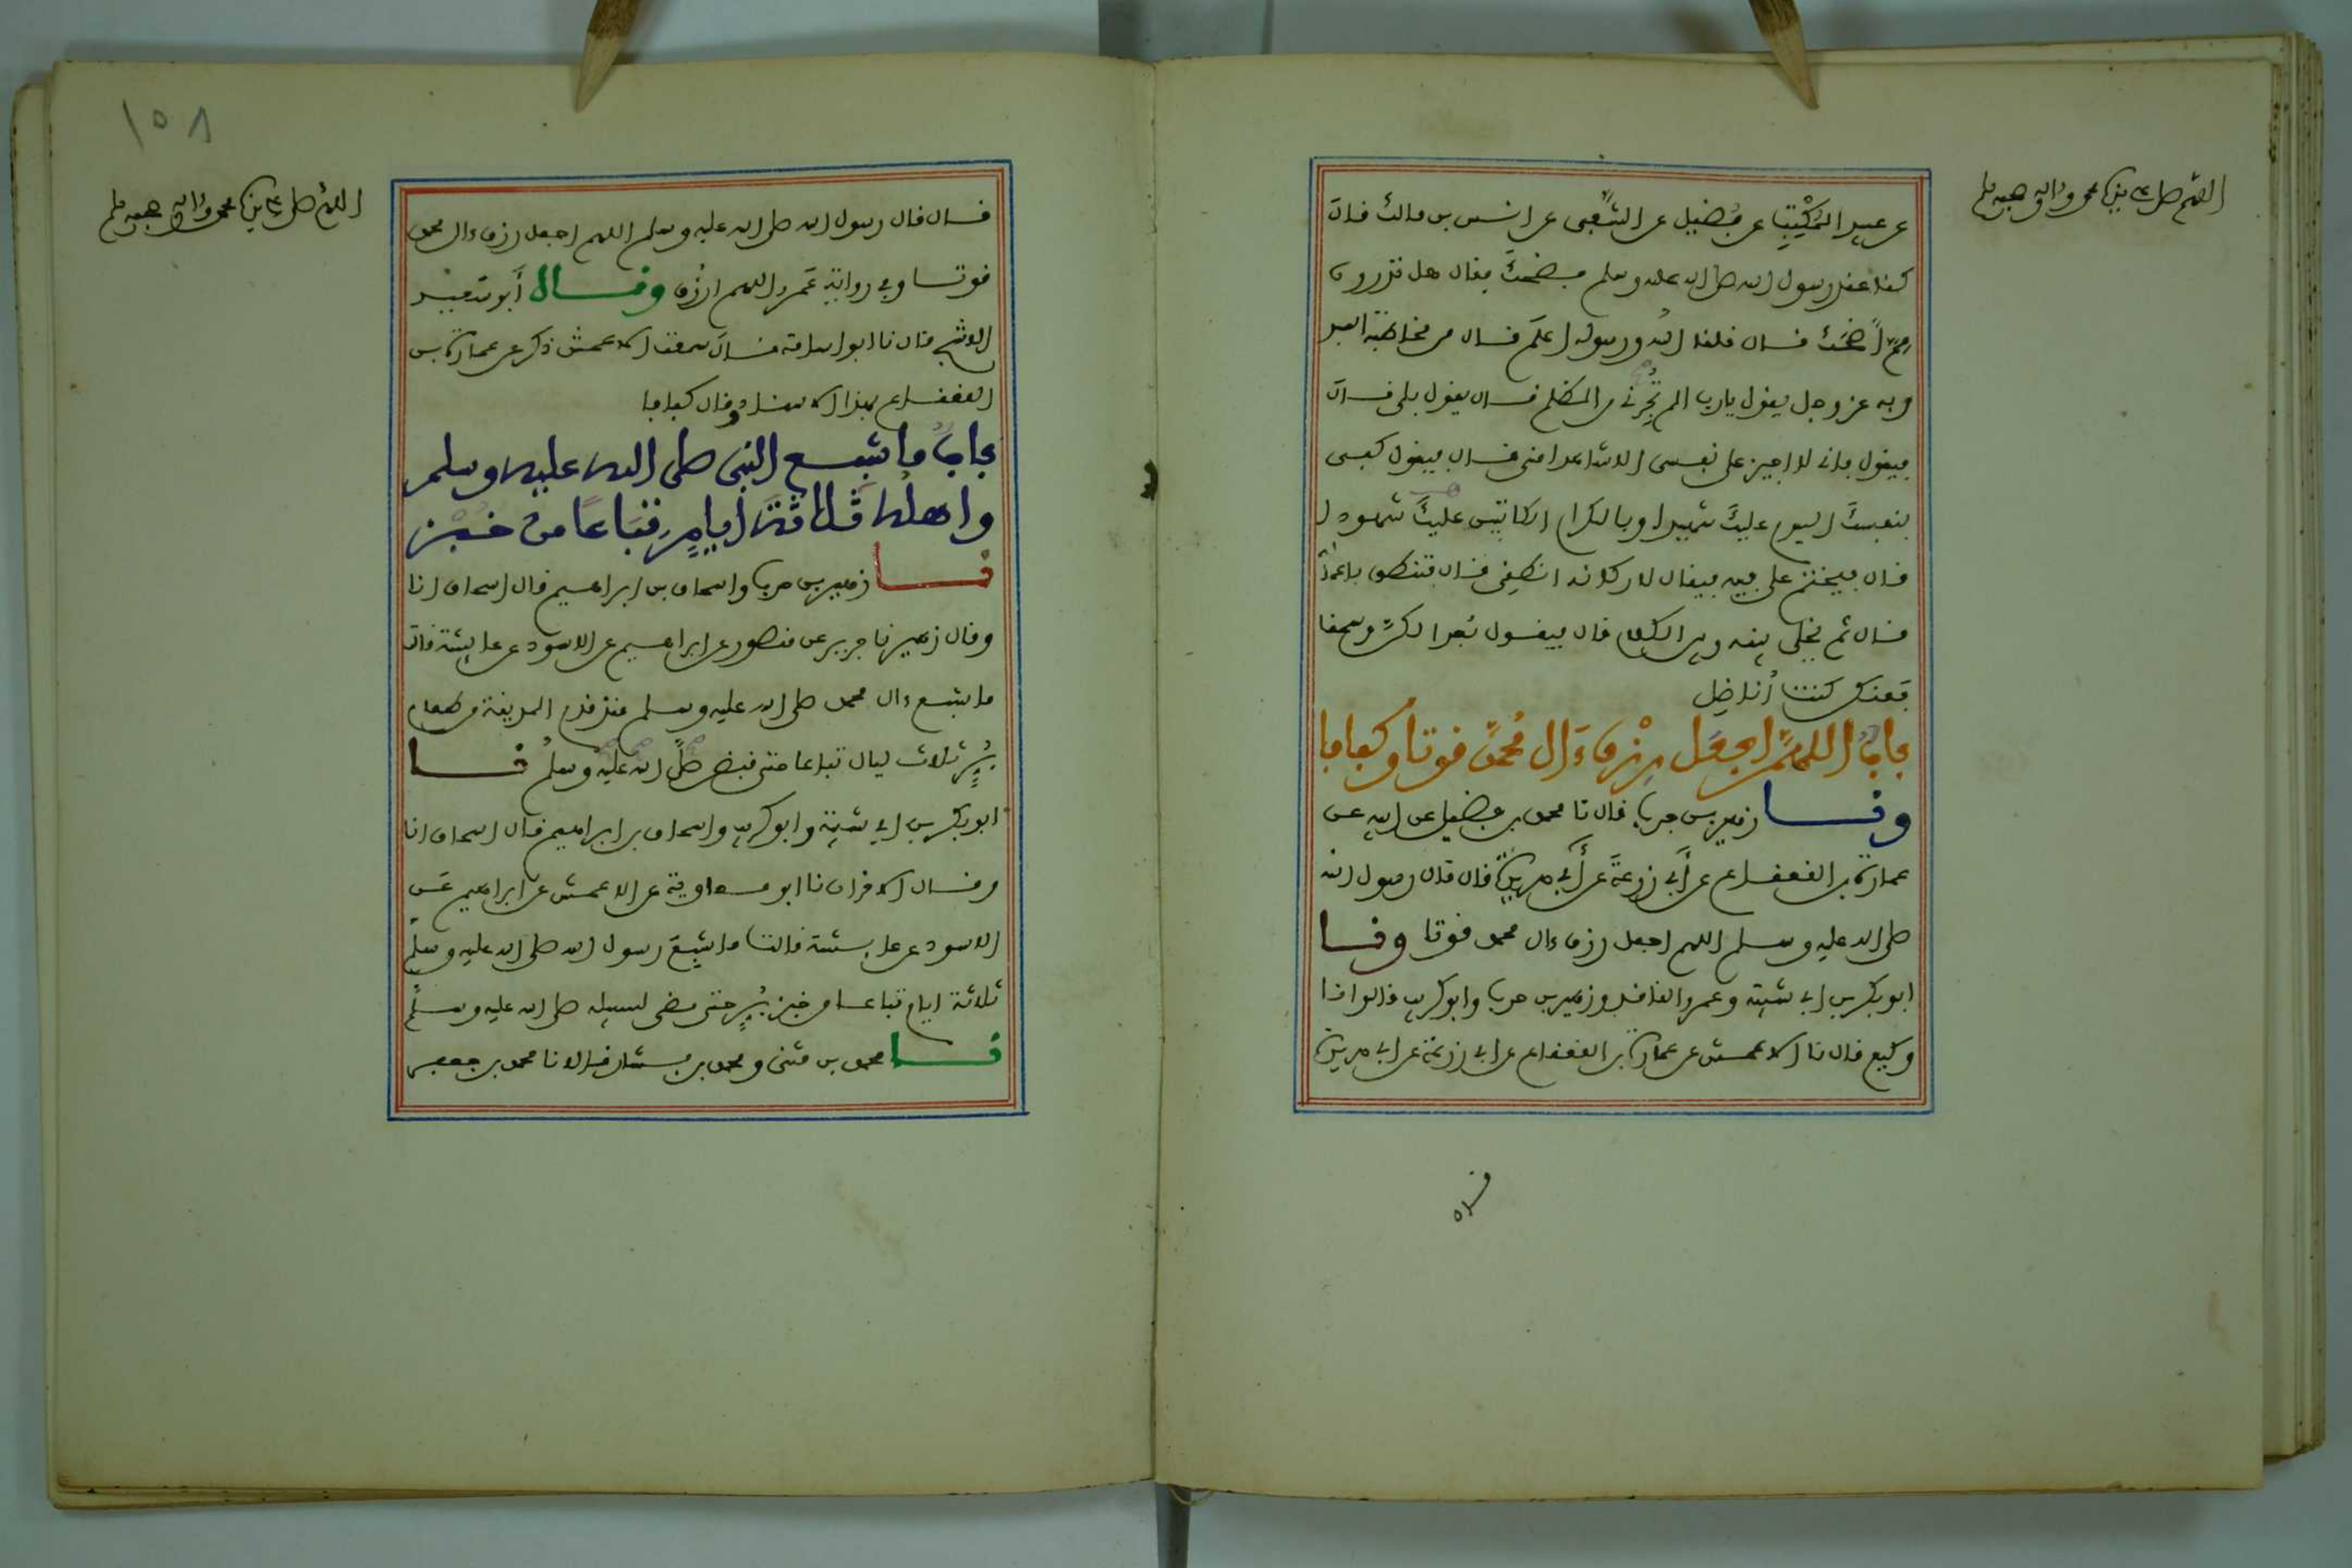 اللهم صل على سيدنا محمد وءاله وصحبه وسلم
عن عبيد المكتب عن فضيل عن الشعبي عن انس بن مالك قال
كنا عند رسول الله صلى الله عليه وسلم فضحك فقال هل تدرون
مم أضحك قال قلنا الله ورسوله اعلم قال من مخاطبة العبد
ربه عز وجل يقول يارب الم تجرني من الظلم قال يقول بلى قال
فيقول فاني لا اجيز على نفسي الا شاهدا مني قال فيقول كفى
بنفسك اليوم عليك شهيدا وبالكرام الكاتبين عليك شهودا
قال فيختم على فيه فيقال لاركانه انطقي قال فتنطق باعماله
قال ثم يخلى بينه وبين الكلام قال فيقول بعدا لكن وسحقا
فعنكن كنت أناضل
باب اللهم اجعل رزق ءال محمد قوتا وكفافا
ونا زهير بن حرب قال نا محمد بن فضيل عن ابيه عن
عمارة بن القعقاع عن أبي زرعة عن أبي هريرة قال قال رسول الله
صلى الله عليه وسلم اللهم اجعل رزق ءال محمد قوتا ونا
ابو بكر بن ابي شيبة وعمرو الناقد وزهير بن حرب وابو كريب قالوا نا
وكيع قال نا الاعمش عن عمارة بن القعقاع عن ابي زرعة عن ابي هريرة
قال
١٥٨
اللهم صل على سيدنا محمد وءاله وصحبه وسلم
قال قال رسول الله صلى الله عليه وسلم اللهم اجعل رزق ءال محمد
قوتا وفي رواية عمرو اللهم ارزق وقال أبو سعيد
الاشج قال نا ابو اسامة قال سمعت الاعمش ذكر عن عمارة بن
القعقاع بهذا الاسناد وقال كفافا
باب ما شبع النبي صلى الله عليه وسلم
واهله ثلاثة أيام تباعا من خبز
نا زهير بن حرب واسحاق بن ابراهيم قال اسحاق انا
وقال زهير نا جرير عن منصور عن ابراهيم عن الاسود عن عايشة قالت
ما شبع ءال محمد صلى الله عليه وسلم منذ قدم المدينة من طعام
بر ثلاث ليال تباعا حتى قبض صلى الله عليه وسلم نا
ابو بكر بن ابي شيبة وابو كريب واسحاق بن ابراهيم قال اسحاق انا
وقال الاخران نا ابو معاوية عن الاعمش عن ابراهيم عن
الاسود عن عايشة قالت ما شبع رسول الله صلى الله عليه وسلم
ثلاثة ايام تباعا من خبز بر حتى مضى لسبيله صلى الله عليه وسلم
نا محمد بن مثنى ومحمد بن بشار قالا نا محمد بن جعفر